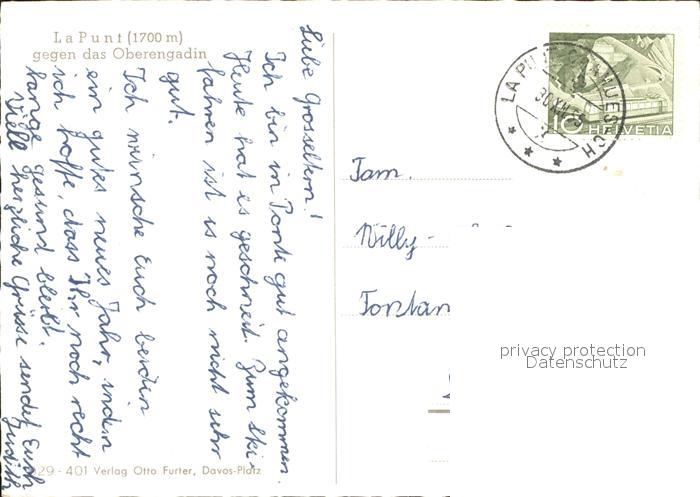 La Punt (1700 m)
gegen das Oberengadin
Liebe Grosseltern!
Ich bin in Ponte gut angekommen.
Heute hat es geschneit. Zum Ski-
fahren ist es noch nicht sehr
gut.
Ich wünsche Euch beiden
ein gutes neues Jahr, indem
ich hoffe, dass Ihr noch recht
lange gesund bleibt.
Viele herzliche Grüsse sendet Euch
Judith
Fam.
Willy -
Fontan
10 HELVETIA
privacy protection
Datenschutz
29 - 401 Verlag Otto Furter, Davos-Platz